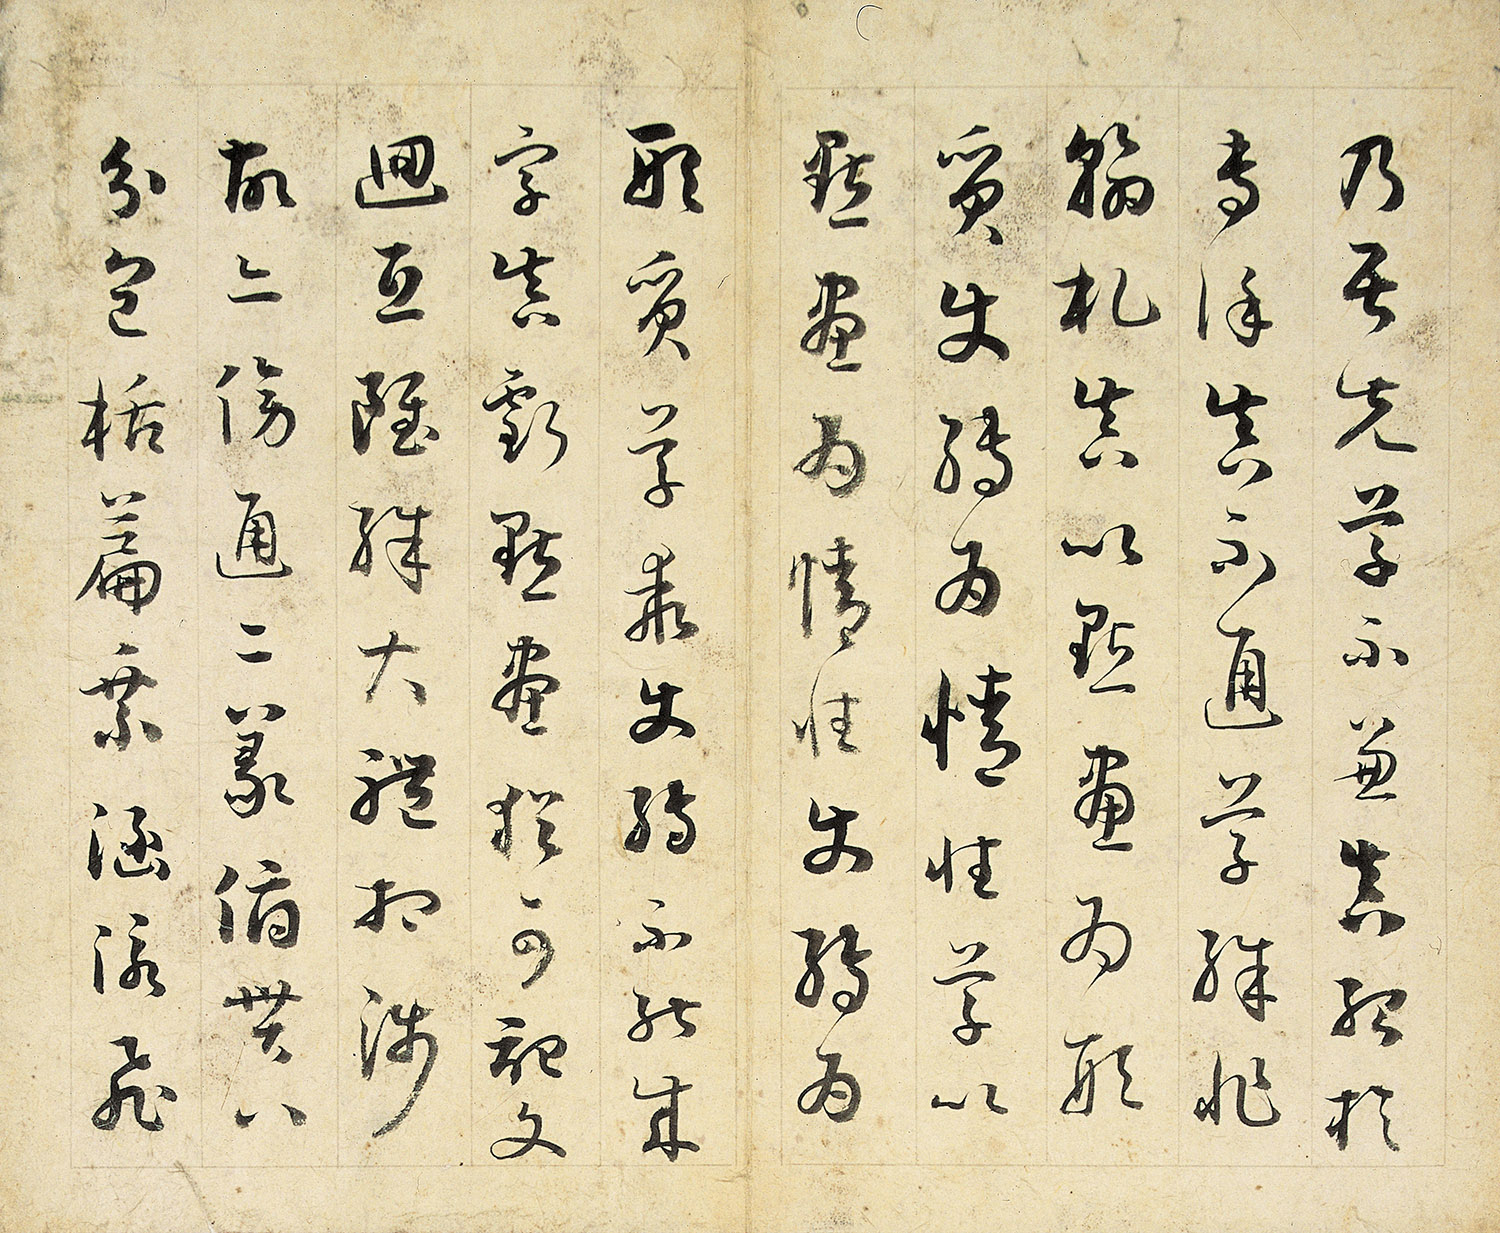 乃居先草不兼真殆於
專謹真不通草殊非
翰札真以點畫為形
質使轉為情性草以
點畫為情性使轉為
形質草乖使轉不能成
字真虧點畫猶可記文
迴互雖殊大體相涉
故亦傍通二篆俯貫八
分包括篇章涵泳飛